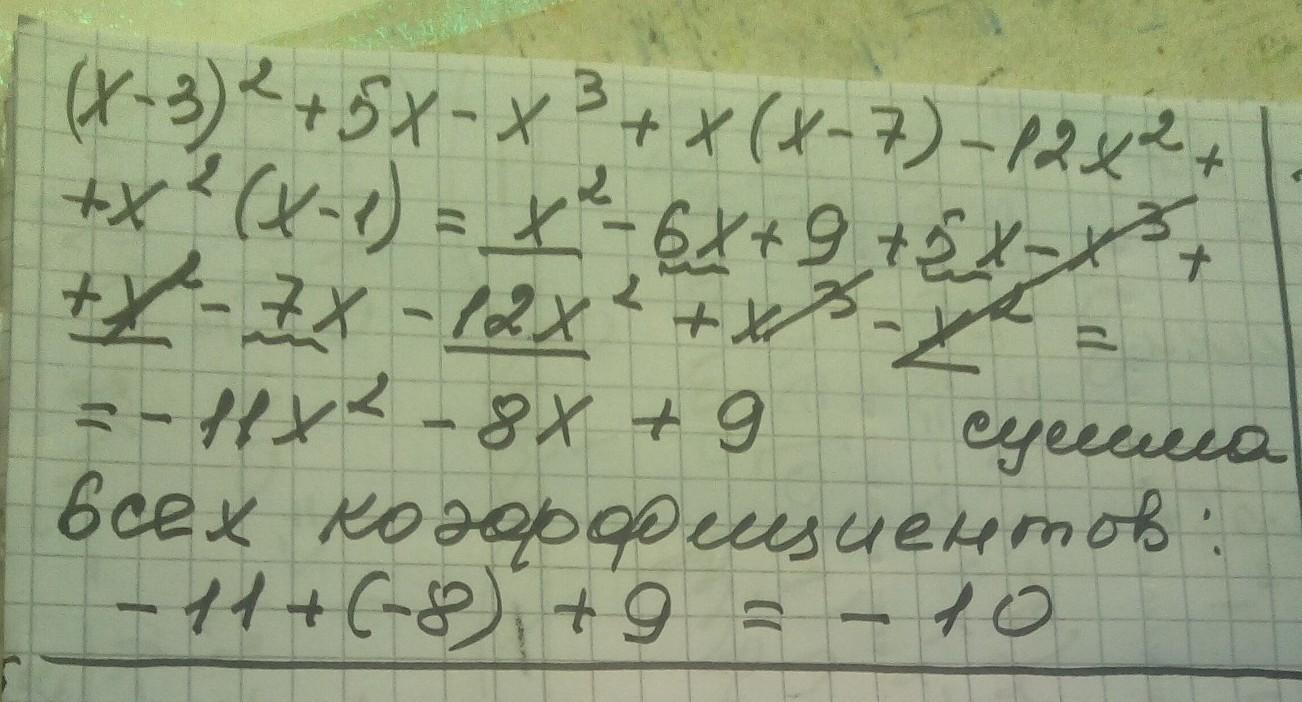 (x-3)² + 5x - x³ + x(x-7) - 12x² +
+x²(x-1) = x² - 6x + 9 + 5x - x³ +
+x² - 7x - 12x² + x³ - x² =
= -11x² - 8x + 9 сумма
всех коэффициентов:
-11+(-8) + 9 = -10